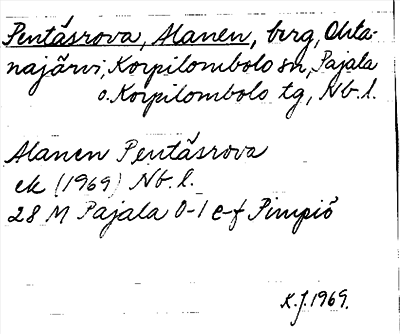 Pentäsrova, Alanen, berg, Ohta-
najärvi, Korpilombolo sn, Pajala
o. Korpilombolo tg, Nb. l.
Alanen Pentäsrova
ek (1969) Nb. l.
28 M Pajala 0-1 e-f Pimpiö
K.J. 1969.